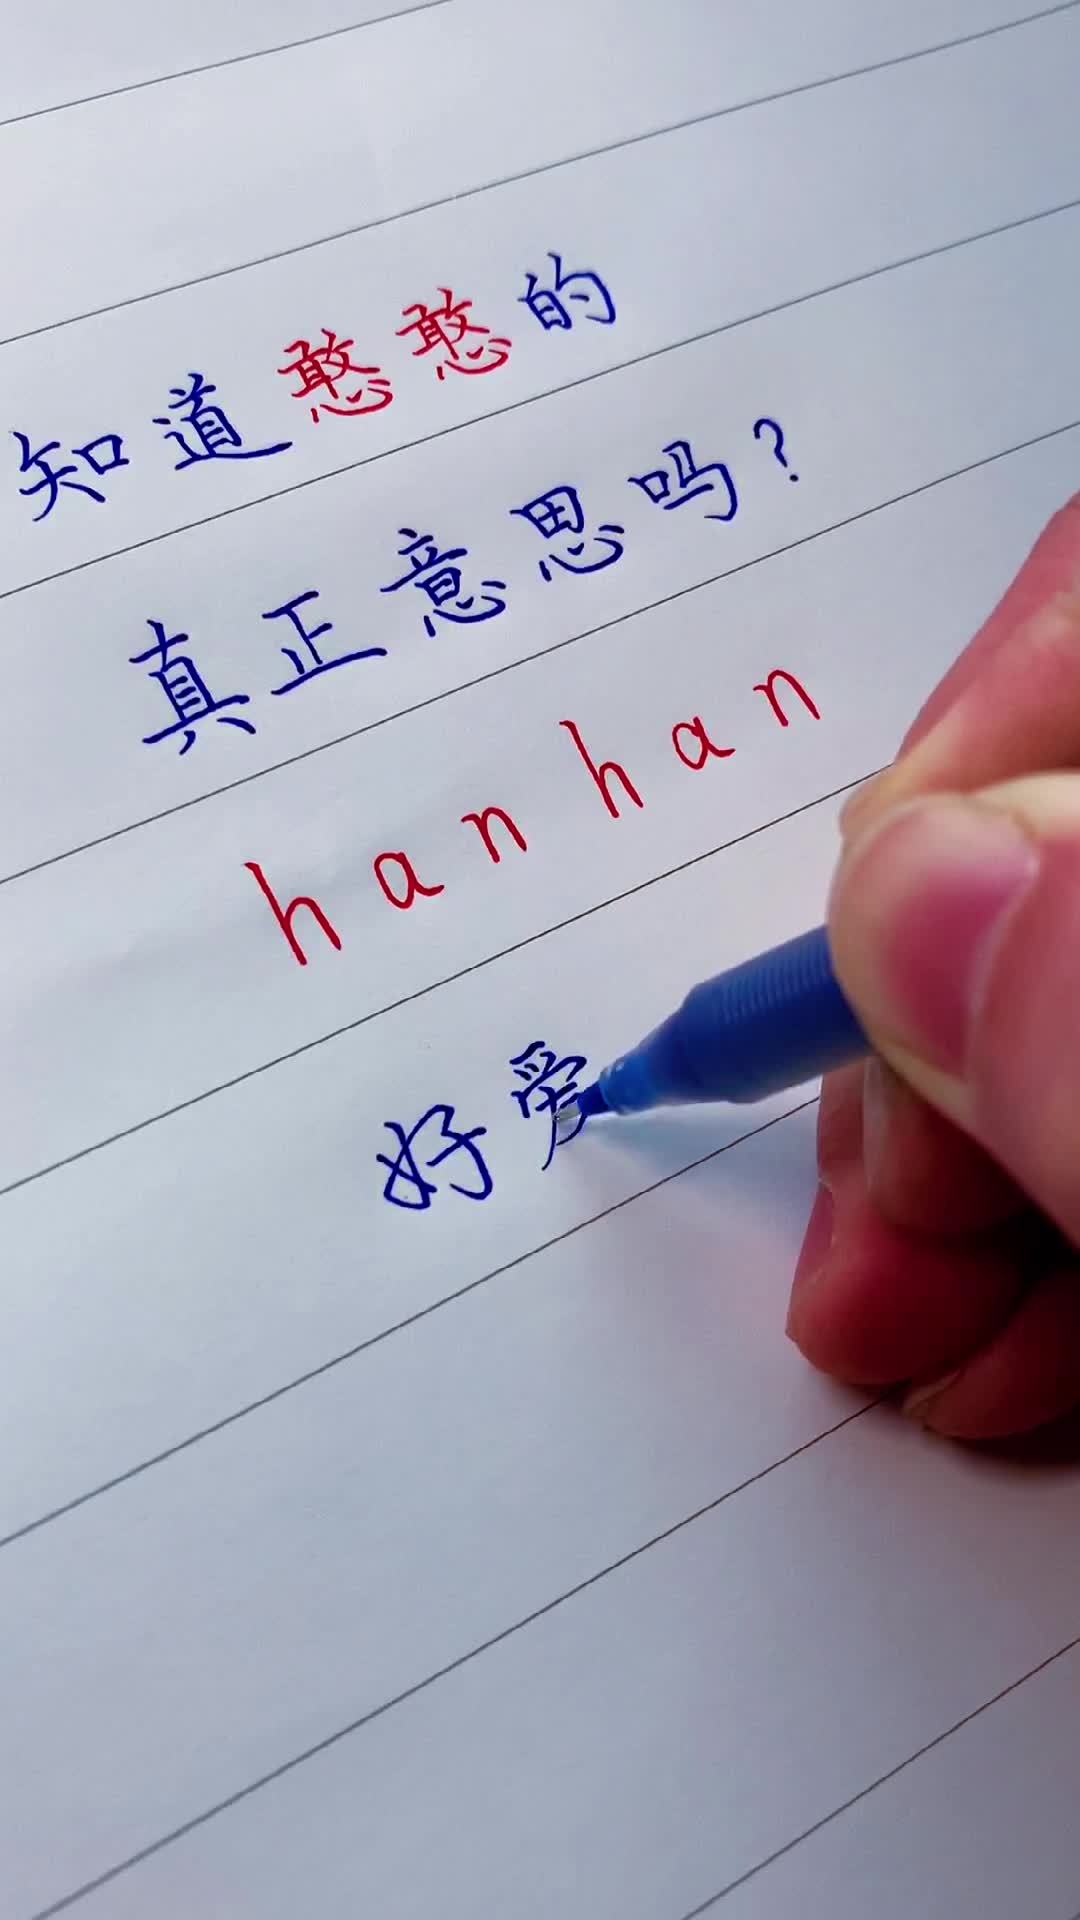 知道憨憨的
真正意思吗?
hanhan
好爱